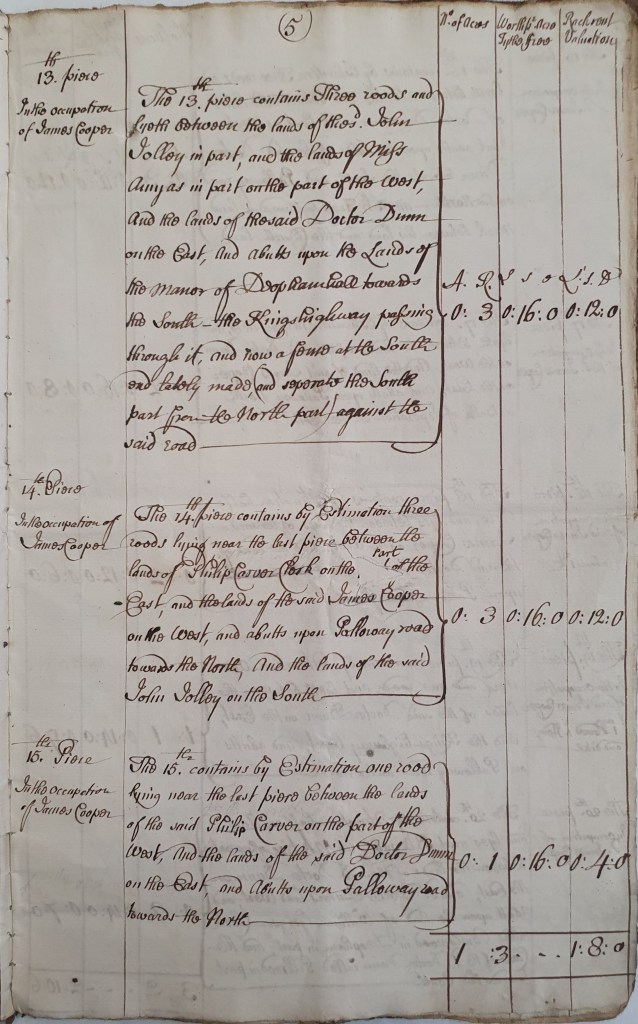 (5)
No. of Acres
Worth pr. Acre
Tythe free
Rack rent
Valuation
13.th piece
In the occupation
of James Cooper
The 13.th piece contains Three roods and
lyeth between the lands of the sd. John
Jolley in part, and the lands of Miss
Amyas in part on the part of the West,
And the lands of the said Doctor Dunn
on the East, and abutts upon the Lands of
the Manor of Deophamhall towards
the South - the Kings highway passing
through it, and now a fence at the South
end lately made (and seperate the South
part from the North part) against the
said road
A. R. L s D L. s. D
0: 3 0: 16: 0 0: 12: 0
14.th Piece
In the occupation of
James Cooper
The 14.th piece contains by Estimation three
roods lying near the last piece between the
lands of Philip Carver Clerk on the part of the
East, and the lands of the said James Cooper
on the West, and abutts upon Galloway road
towards the North, And the lands of the said
John Jolley on the South
0: 3 0: 16: 0 0: 12: 0
15.th Piece
In the occupation
of James Cooper
The 15.th contains by Estimation one rood
lying near the last piece between the lands
of the said Philip Carver on the part of the
West, And the lands of the said Doctor Dunn
on the East, and Abutts upon Galloway road
towards the North
0: 1 0: 16: 0 0: 4: 0
1 :3 - - 1: 8: 0